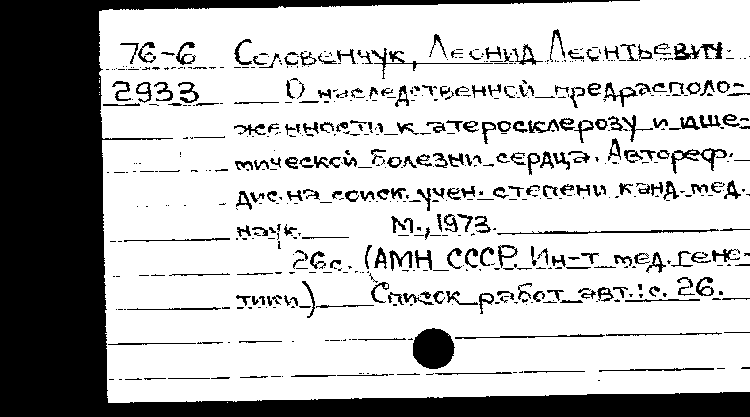 76-6 Соловенчук, Леонид Леонтьевич.
2933 О наследственной предрасполо-
женности к атеросклерозу и ише-
мической болезни сердца. Автореф.
дис. на соиск. учен. степени канд. мед.
наук. М., 1973.
26с. (АМН СССР. Ин-т мед. гене-
тики) Список работ авт.: с. 26.